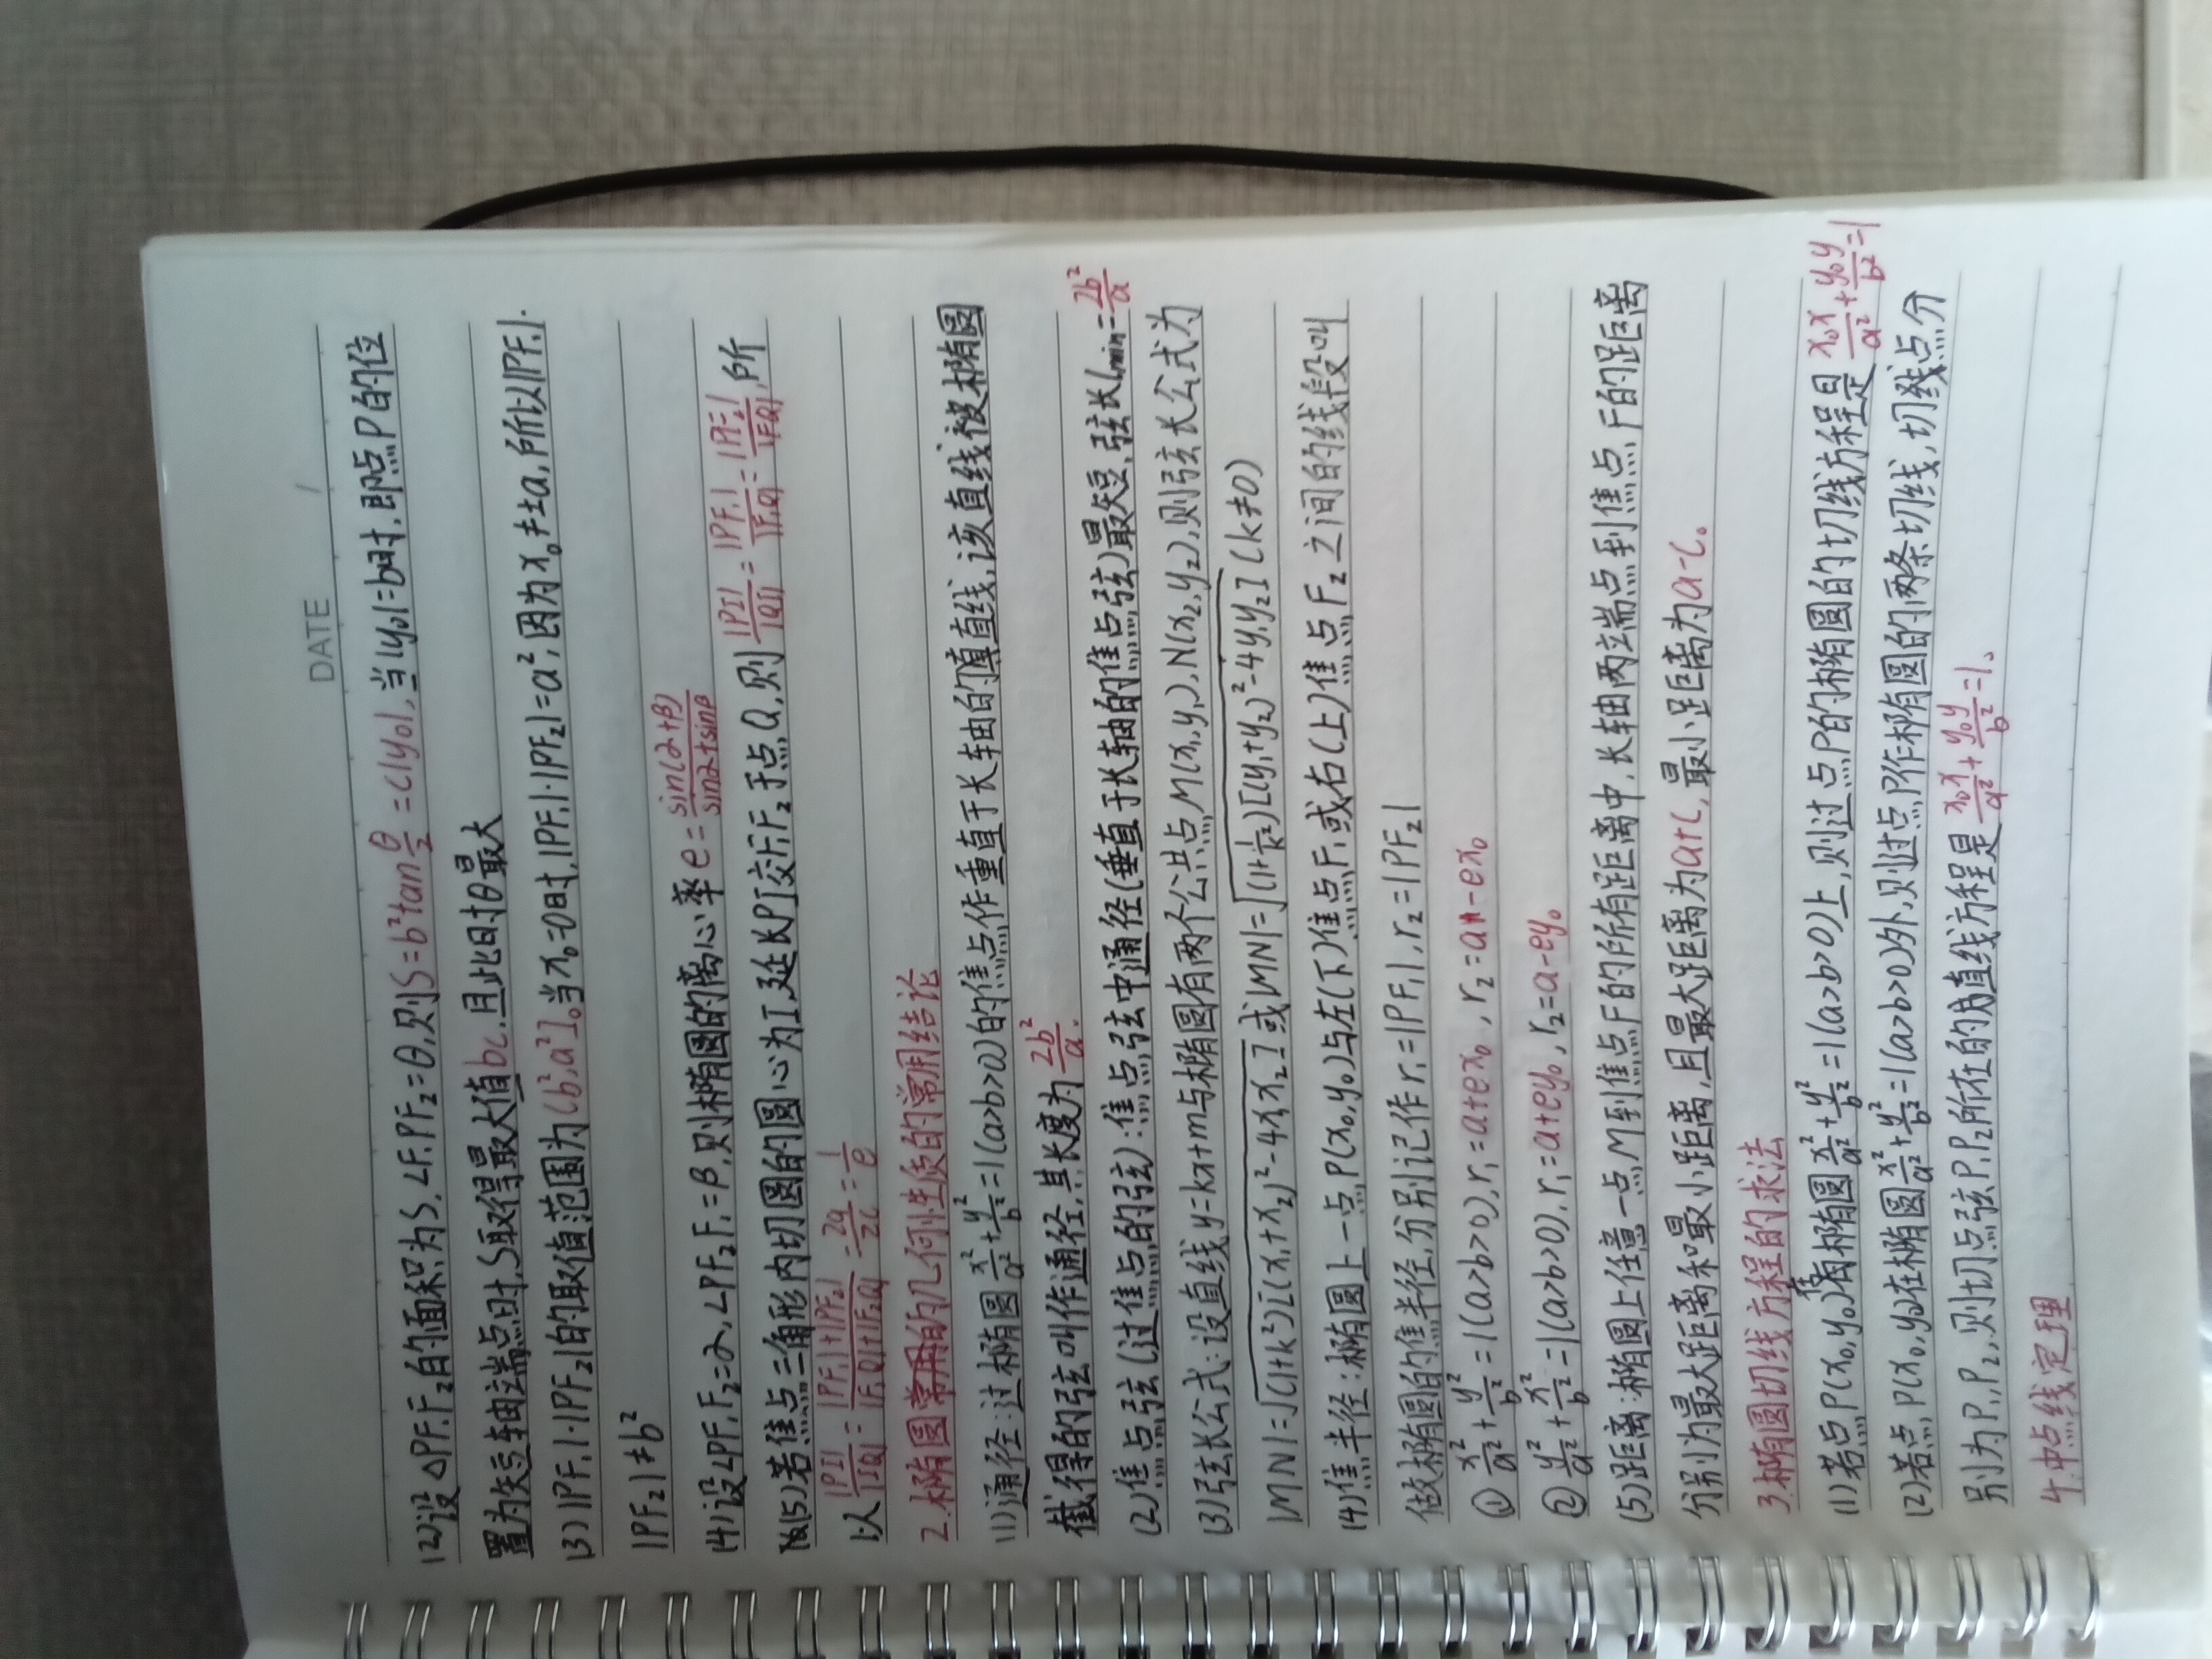 DATE /
(2)设△PF₁F₂的面积为S,∠F₁PF₂=θ,则S=b²tanθ/2=c|y₀|,当|y₀|=b时,即点P的位
置为短轴端点时,S取得最大值bc,且此时θ最大
(3)|PF₁|·|PF₂|的取值范围为(b²,a²]。当x₀=0时,|PF₁|·|PF₂|=a²,因为x₀≠±a,所以|PF₁|·
|PF₂|≠b²
(4)设∠PF₁F₂=α,∠PF₂F₁=β,则椭圆的离心率e=sin(α+β)/sinα+sinβ
(5)若焦点三角形内切圆的圆心为I,延长PI交F₁F₂于点Q,则|PI|/|QI|=|PF₁|/|F₁Q|=|PF₂|/|F₂Q|,所
以|PI|/|IQ|=|PF₁|+|PF₂|/|F₁Q|+|F₂Q|=2a/2c=1/e
2.椭圆常用的几何性质的常用结论
(1)通径:过椭圆x²/a²+y²/b²=1(a>b>0)的焦点作垂直于长轴的直线,该直线被椭圆
截得的弦叫作通径,其长度为2b²/a.
(2)焦点弦(过焦点的弦):焦点弦中通径(垂直于长轴的焦点弦)最短,弦长lmin=2b²/a
(3)弦长公式:设直线y=kx+m与椭圆有两个公共点,M(x₁,y₁),N(x₂,y₂),则弦长公式为
|MN|=√(1+k²)[(x₁+x₂)²-4x₁x₂]或|MN|=√(1+1/k²)[(y₁+y₂)²-4y₁y₂](k≠0)
(4)焦半径:椭圆上一点P(x₀,y₀)与左(下)焦点F₁或右(上)焦点F₂之间的线段叫
做椭圆的焦半径,分别记作r₁=|PF₁|,r₂=|PF₂|
①x²/a²+y²/b²=1(a>b>0),r₁=a+ex₀,r₂=a-ex₀
②y²/a²+x²/b²=1(a>b>0),r₁=a+ey₀,r₂=a-ey₀
(5)距离:椭圆上任意一点M到焦点F的所有距离中,长轴两端点到焦点F的距离
分别为最大距离和最小距离,且最大距离为a+c,最小距离为a-c。
3.椭圆切线方程的求法
(1)若点P(x₀,y₀)在椭圆x²/a²+y²/b²=1(a>b>0)上,则过点P的椭圆的切线方程是x₀x/a²+y₀y/b²=1
(2)若点P(x₀,y₀)在椭圆x²/a²+y²/b²=1(a>b>0)外,则过点P作椭圆的两条切线,切线点分
别为P₁,P₂,则切点弦P₁P₂所在的直线方程是x₀x/a²+y₀y/b²=1。
4.中点线定理